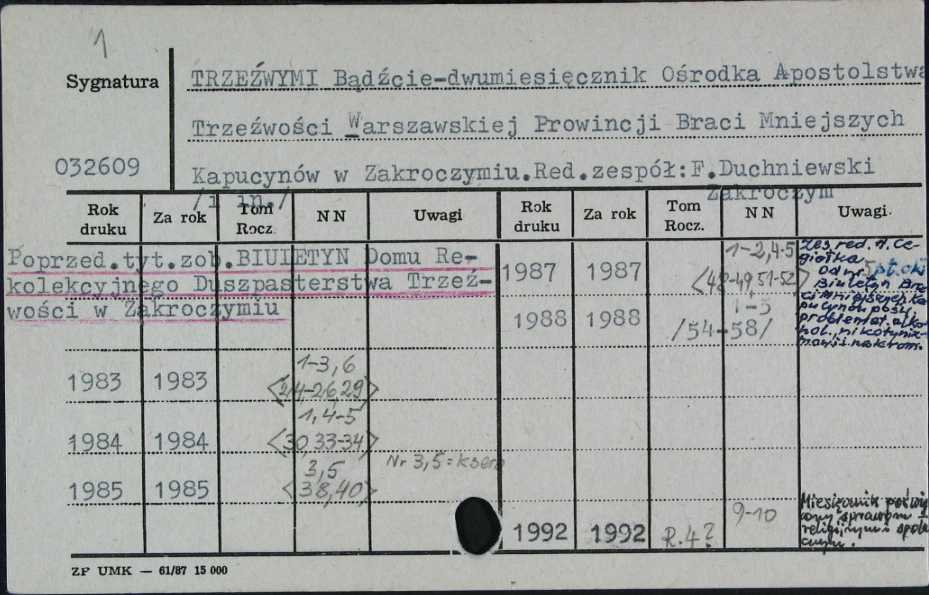 1
Sygnatura
TRZEŹWYMI Bądźcie-dwumiesięcznik Ośrodka Apostolstwa
Trzeźwości Warszawskiej Prowincji Braci Mniejszych
032609
Kapucynów w Zakroczymiu.Red.zespół:F.Duchniewski
/i in./ Zakroczym
Rok druku Za rok Tom Rocz. NN Uwagi Rok druku Za rok Tom Rocz. NN Uwagi
Poprzed.tyt.zob.BIULETYN Domu Re-
kolekcyjnego Duszpasterstwa Trzeź-
wości w Zakroczymiu
1987 1987 1-2,4-5
<48-49,51-52>
1988 1988 1-5
/54-58/
Zes. red. A. Ce-
giołka
Od nr 5 pt.:
Biuletyn Bra-
ci Mniejszych Ka-
pucynów pośw.
problemat. alko-
hol., nikotyniz-
1983 1983 1-3,6
<24-26,29>
1984 1984 1,4-5
<30,33-34>
Nr 3,5=ksero
1985 1985 3,5
<38,40>
1992 1992 R.4? 9-10
Miesięcznik poświę-
cony sprawom
religijnym i społe-
cznym.
ZP UMK — 61/87 15 000